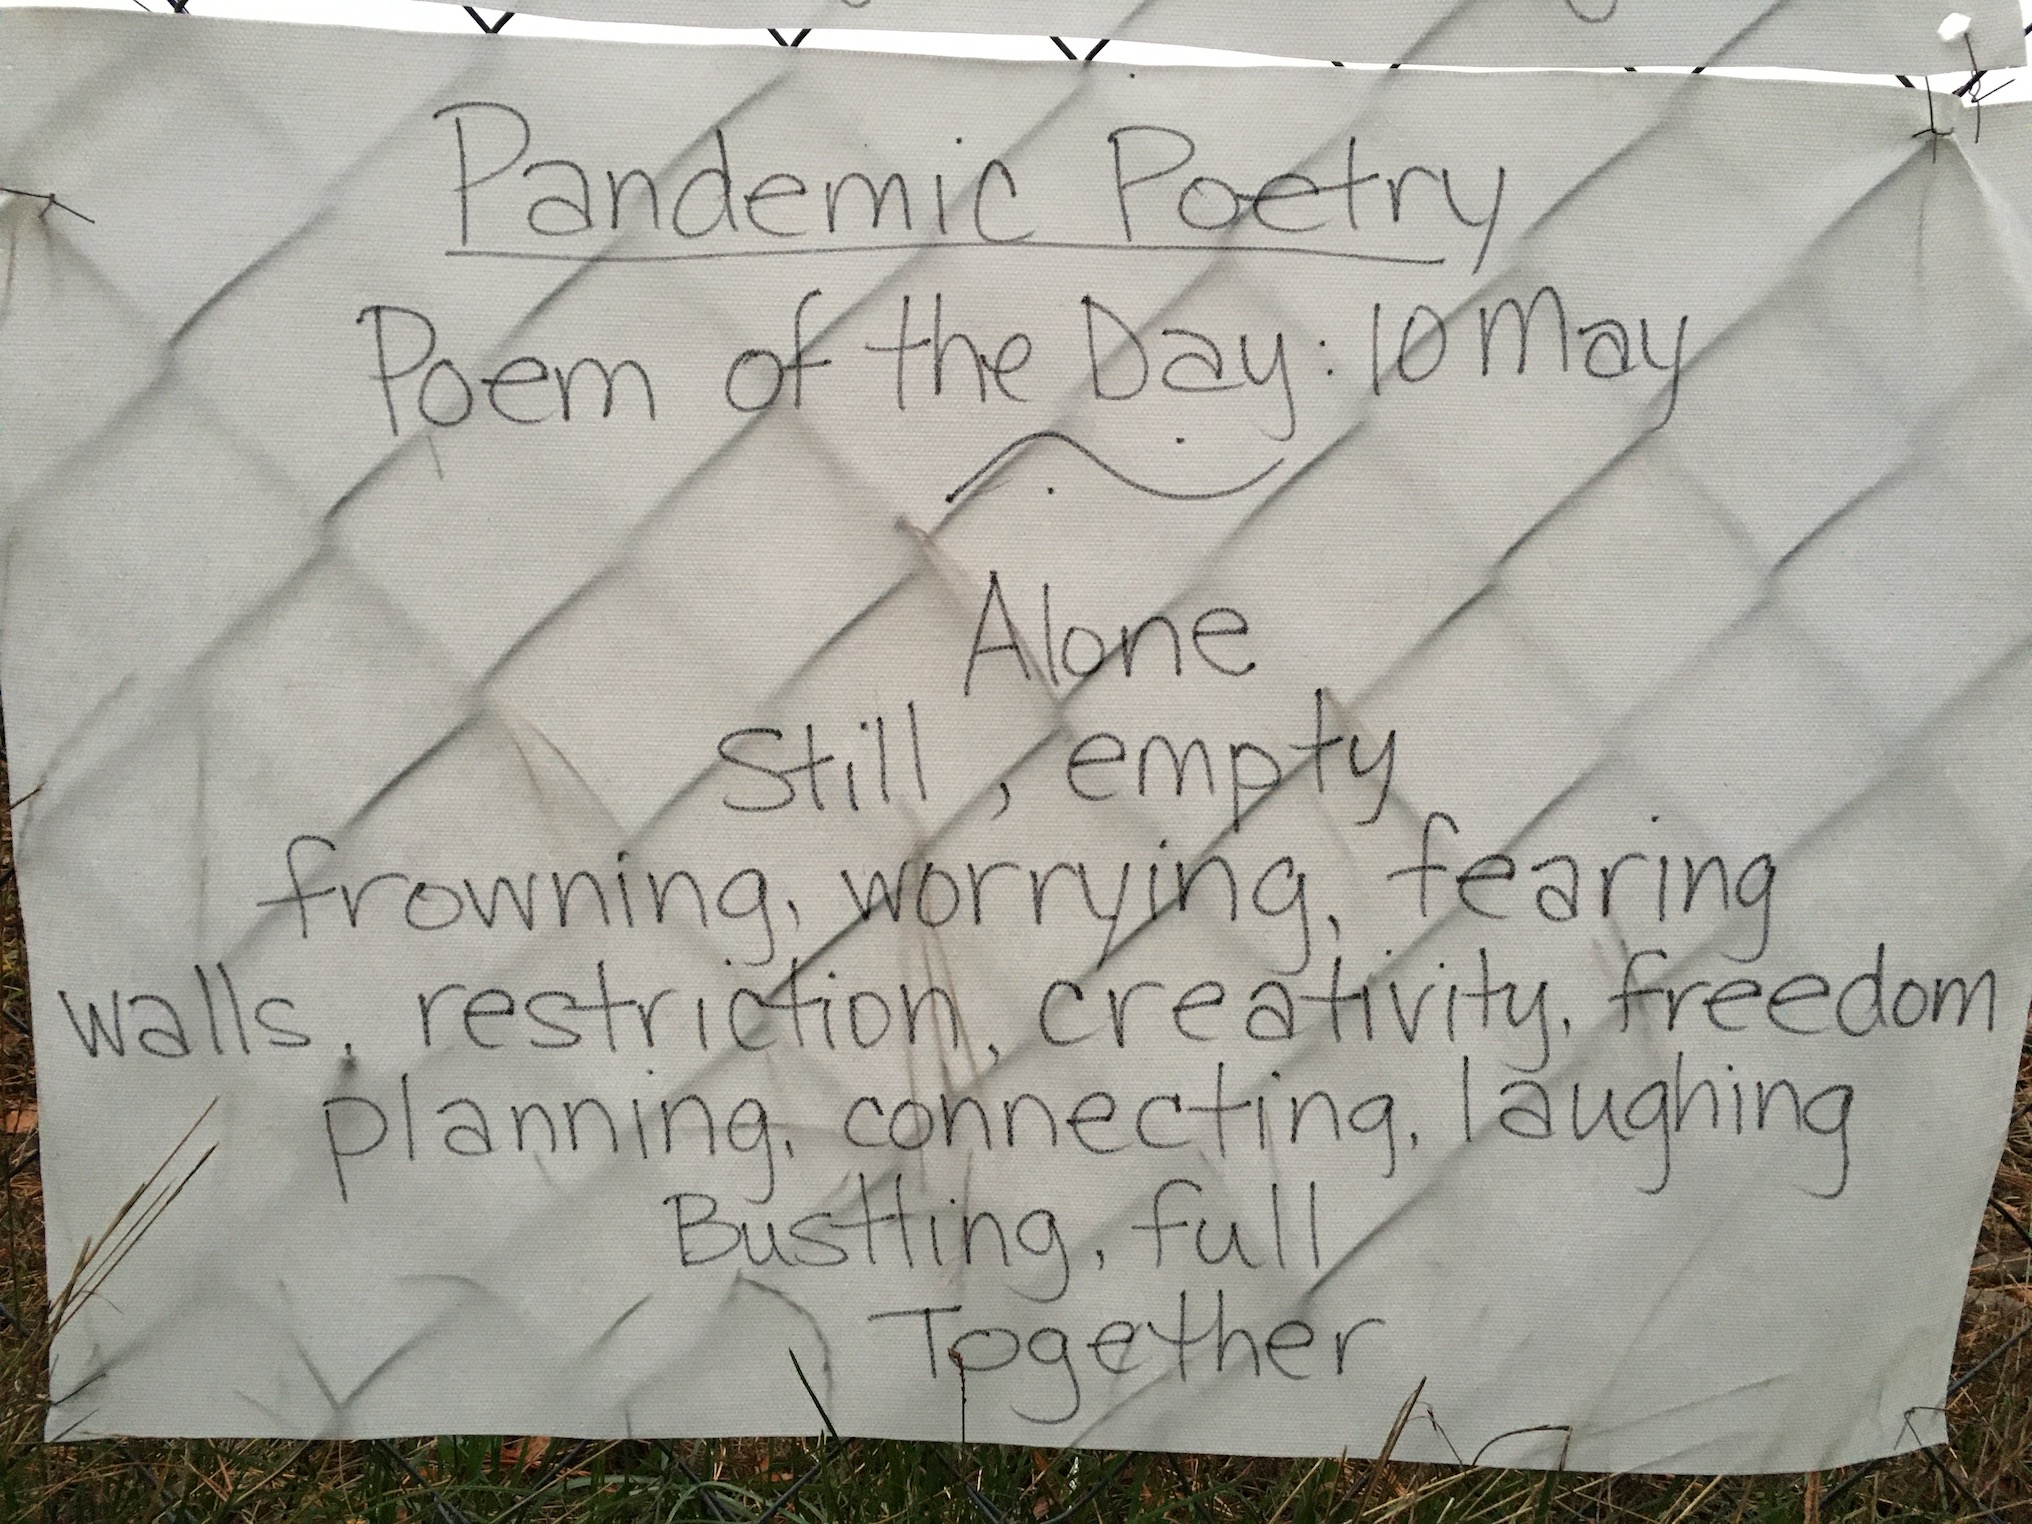 Pandemic Poetry
Poem of the Day: 10 May
Alone
Still, empty
frowning, worrying, fearing
walls, restriction, creativity, freedom
planning, connecting, laughing
Bustling, full
Together